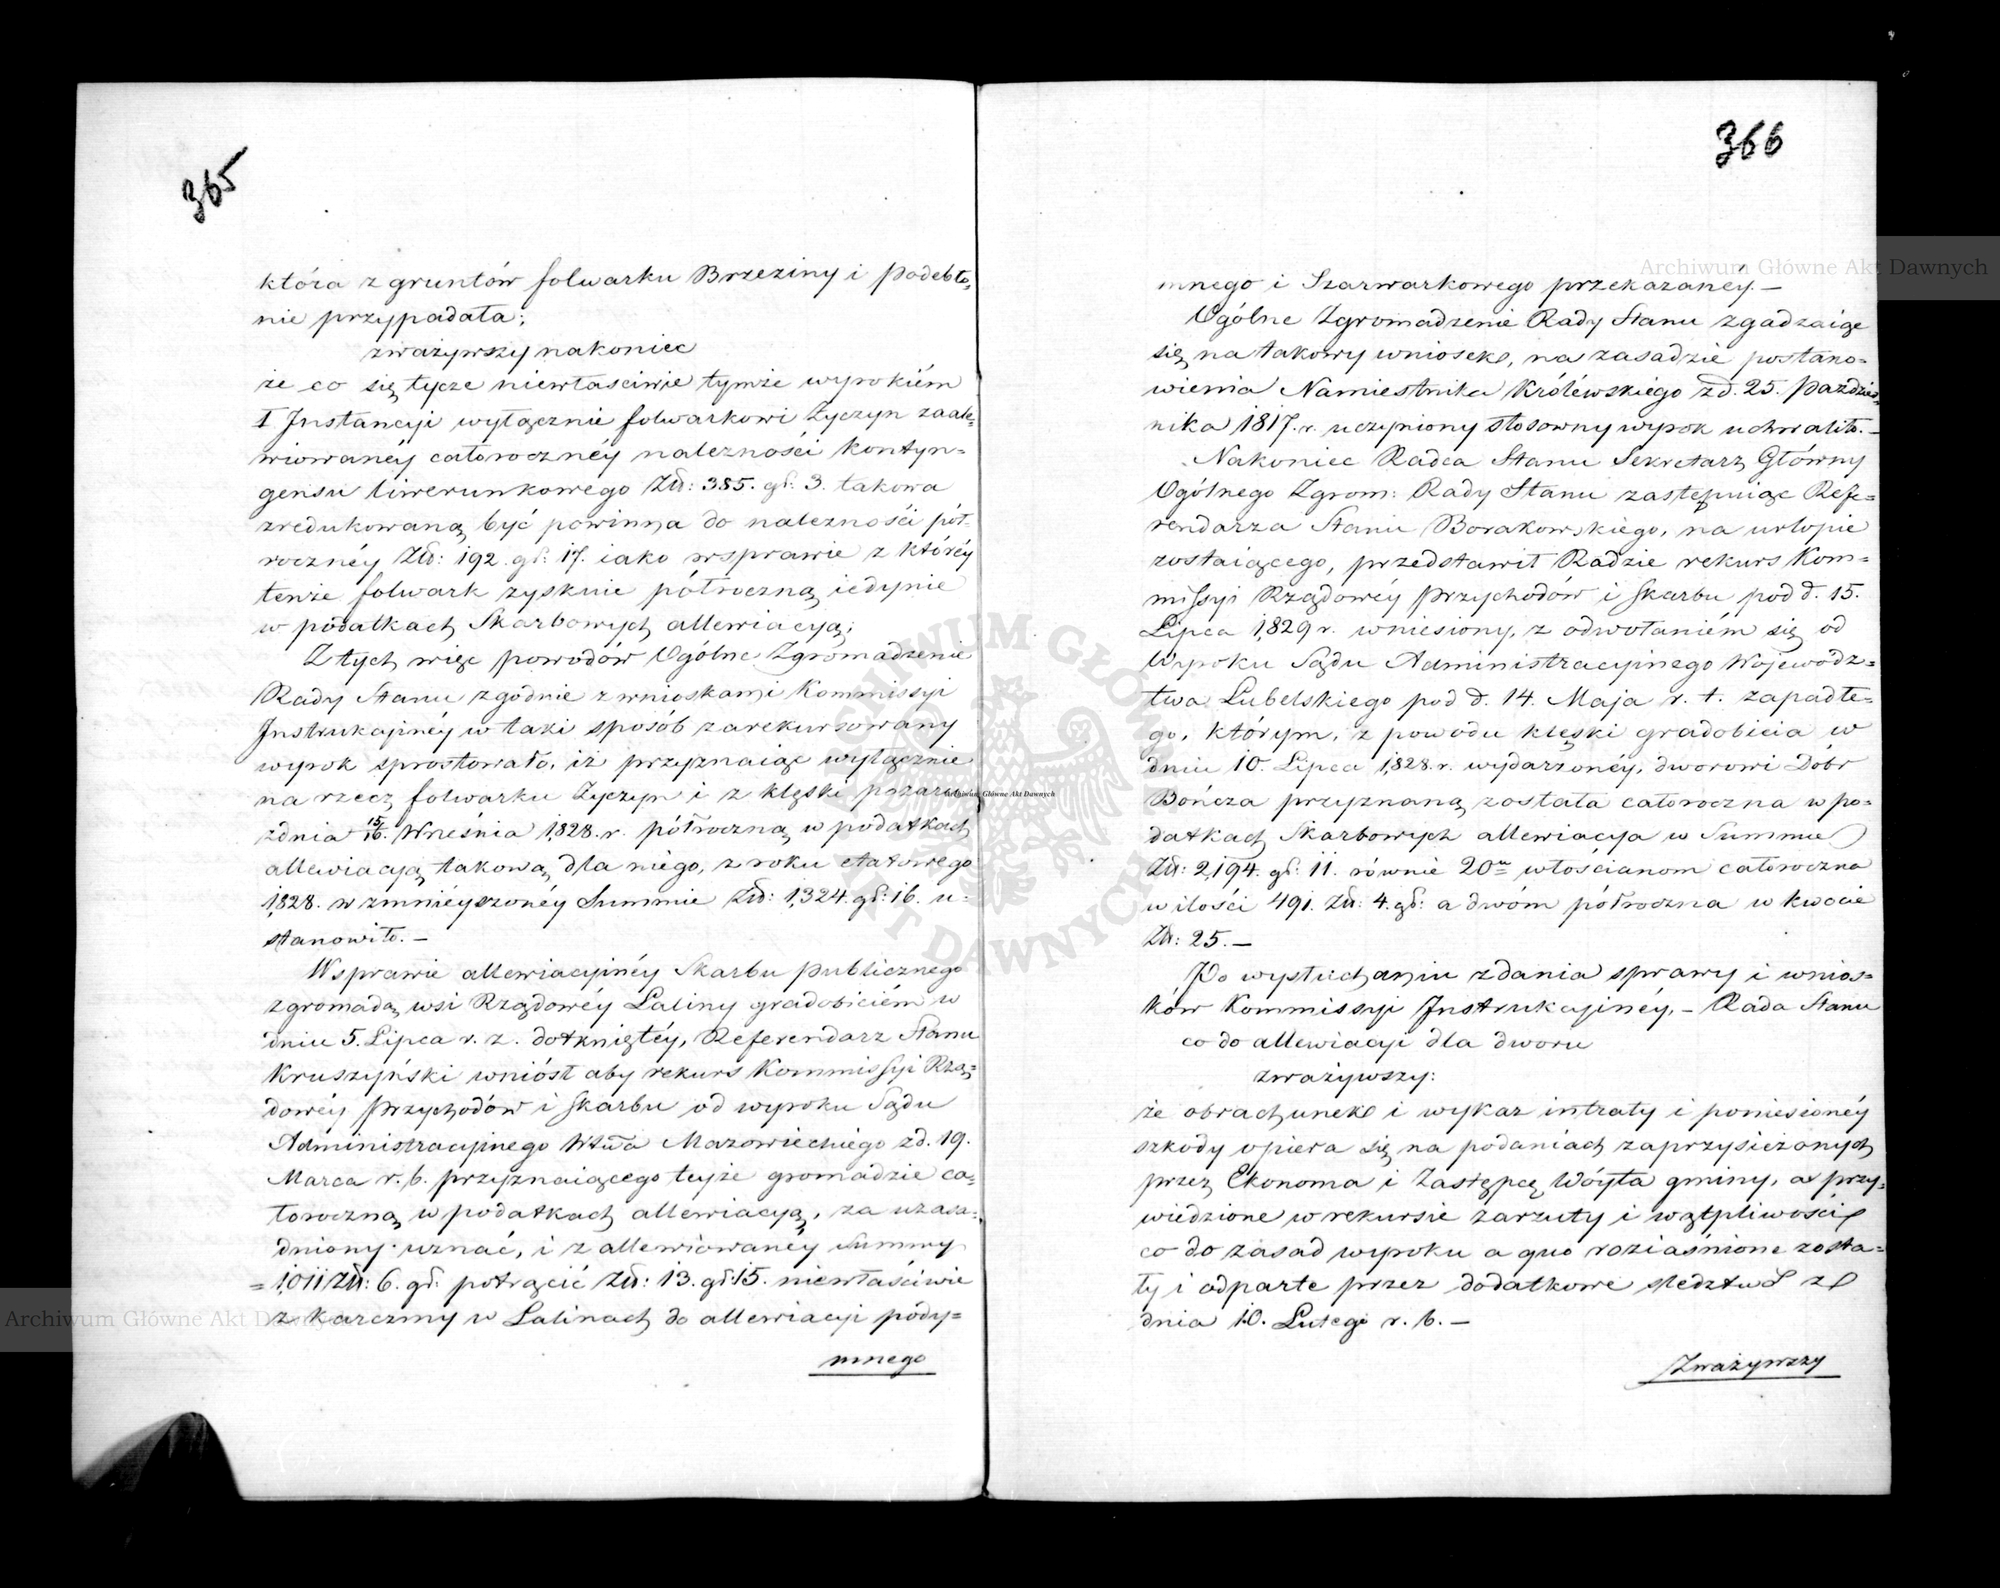 365
która z gruntów folwarku Brzeziny i Podebło-
nie przypadała;
zważywszy nakoniec
że co się tycze niewłaściwie tymże wyrokiém
I Instancyi wyłącznie folwarkowi Życzyn zaale-
wiowanéy całorocznéy należności kontyn-
gensu liwerunkowego Złł: 385. gł: 3. takowa
zredukowaną być powinna do należności pół-
rocznéy Złł: 192. gł: 17. iako w sprawie z któréy
tenże folwark zyskuie półroczną iedynie
w podatkach Skarbowych allewiacyą;
Z tych więc powodów Ogólne Zgromadzenie
Rady Stanu zgodnie z wnioskami Kommissyi
Instrukcyinéy w taki sposób zarekursowany
wyrok sprostowało, iż przyznaiąc wyłącznie
na rzecz folwarku Życzyn i z klęski pożaru
z dnia 15/16. Września 1,828. r. półroczną w podatkach
allewiacyą takową dla niego, z roku etatowego
1,828. w zmniéyszonéy Summie Złł: 1,324. gł: 16. u-
stanowiło. —
W sprawie allewiacyinéy Skarbu publicznego
z gromadą wsi Rządowéy Laliny gradobiciém w
dniu 5. Lipca r. z. dotkniętéy, Referendarz Stanu
Kruszyński wniósł aby rekurs Kommissyi Rzą-
dowéy Przychodów i Skarbu od wyroku Sądu
Administracyinego Wtwa Mazowieckiego z d. 19.
Marca r. b. przyznaiącego teyże gromadzie ca-
łoroczną w podatkach allewiacyą, za uzasa-
dniony uznać, i z allewiowanéy Summy
= 1,011 Złł: 6. gł: potrącić Złł: 13. gł: 15. niewłaściwie
z karczmy w Lalinach do allewiacyi pody-
mnego
366
mnego i Szarwarkowego przekazanéy. —
Ogólne Zgromadzenie Rady Stanu zgadzaiąc
się na takowy wniosek, na zasadzie postano-
wienia Namiestnika Królewskiégo z d. 25. Paździer-
nika 1817. r. uczyniony stosowny wyrok uchwaliło. —
Nakoniec Radca Stanu Sekretarz Główny
Ogólnego Zgrom: Rady Stanu zastępuiąc Refe-
rendarza Stanu Borakowskiego, na urlopie
zostaiącego, przedstawił Radzie rekurs Kom-
missyi Rządowéy Przychodów i Skarbu pod d. 15.
Lipca 1,829 r. wniesiony, z odwołaniém się od
Wyroku Sądu Administracyinego Wojewódz-
twa Lubelskiego pod d. 14. Maja r. t. zapadłe-
go, którym, z powodu klęski gradobicia w
dniu 10. Lipca 1,828. r. wydarzonéy, dworowi Dóbr
Bończa przyznaną została całoroczna w po-
datkach Skarbowych allewiacya w Summie
Złł: 2,194. gł: 11. równie 20u włościanom całoroczna
w ilości 491. Złł: 4. gł: a dwóm półroczna w kwocie
Złł: 25. —
Po wysłuchaniu zdania sprawy i wnios-
ków Kommissyi Instrukcyinéy, – Rada Stanu
co do allewiacyi dla dworu
zważywszy:
że obrachunek i wykaz intraty i poniesionéy
szkody opiera się na podaniach zaprzysiężonych
przez Ekonoma i Zastępcę Wóyta gminy, a przy-
wiedzione w rekursie zarzuty i wątpliwości
co do zasad wyroku a quo roziaśnione zosta-
ły i odparte przez dodatkowe sledztwo z
dnia 10. Lutego r. b. —
Zważywszy
Archiwum Główne Akt Dawnych
Archiwum Główne Akt Dawnych
Archiwum Główne Akt Dawnych
ARCHIWUM GŁÓWNE AKT DAWNYCH